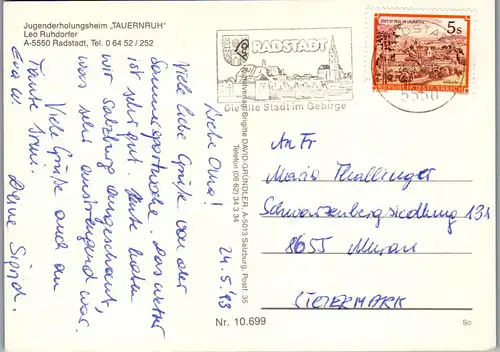 Jugenderholungsheim „TAUERNRUH"
Leo Ruhdorfer
A-5550 Radstadt, Tel. 0 64 52 / 252
24.5.93
Liebe Oma!
Viele liebe Grüße von der
Sommersportwoche. Das Wetter
ist sehr gut. Heute haben
wir Salzburg angeschaut,
was sehr anstrengend war.
Viele Grüße auch an
Tante
Eva u.
Deine Sigrid.
Brigitte DAVID-GRÜNDLER, A-5013 Salzburg, Postf. 35
Telefon (0 62) 34 3 34
RADSTADT
Die alte Stadt im Gebirge
STIFT ST. PAUL IM LAVANTTAL
5s
REPUBLIK ÖSTERREICH
5550
An Fr
Maria Thallinger
Schwarzenbergsiedlung 131
8655 Murau
STEIERMARK
Nr. 10.699
So